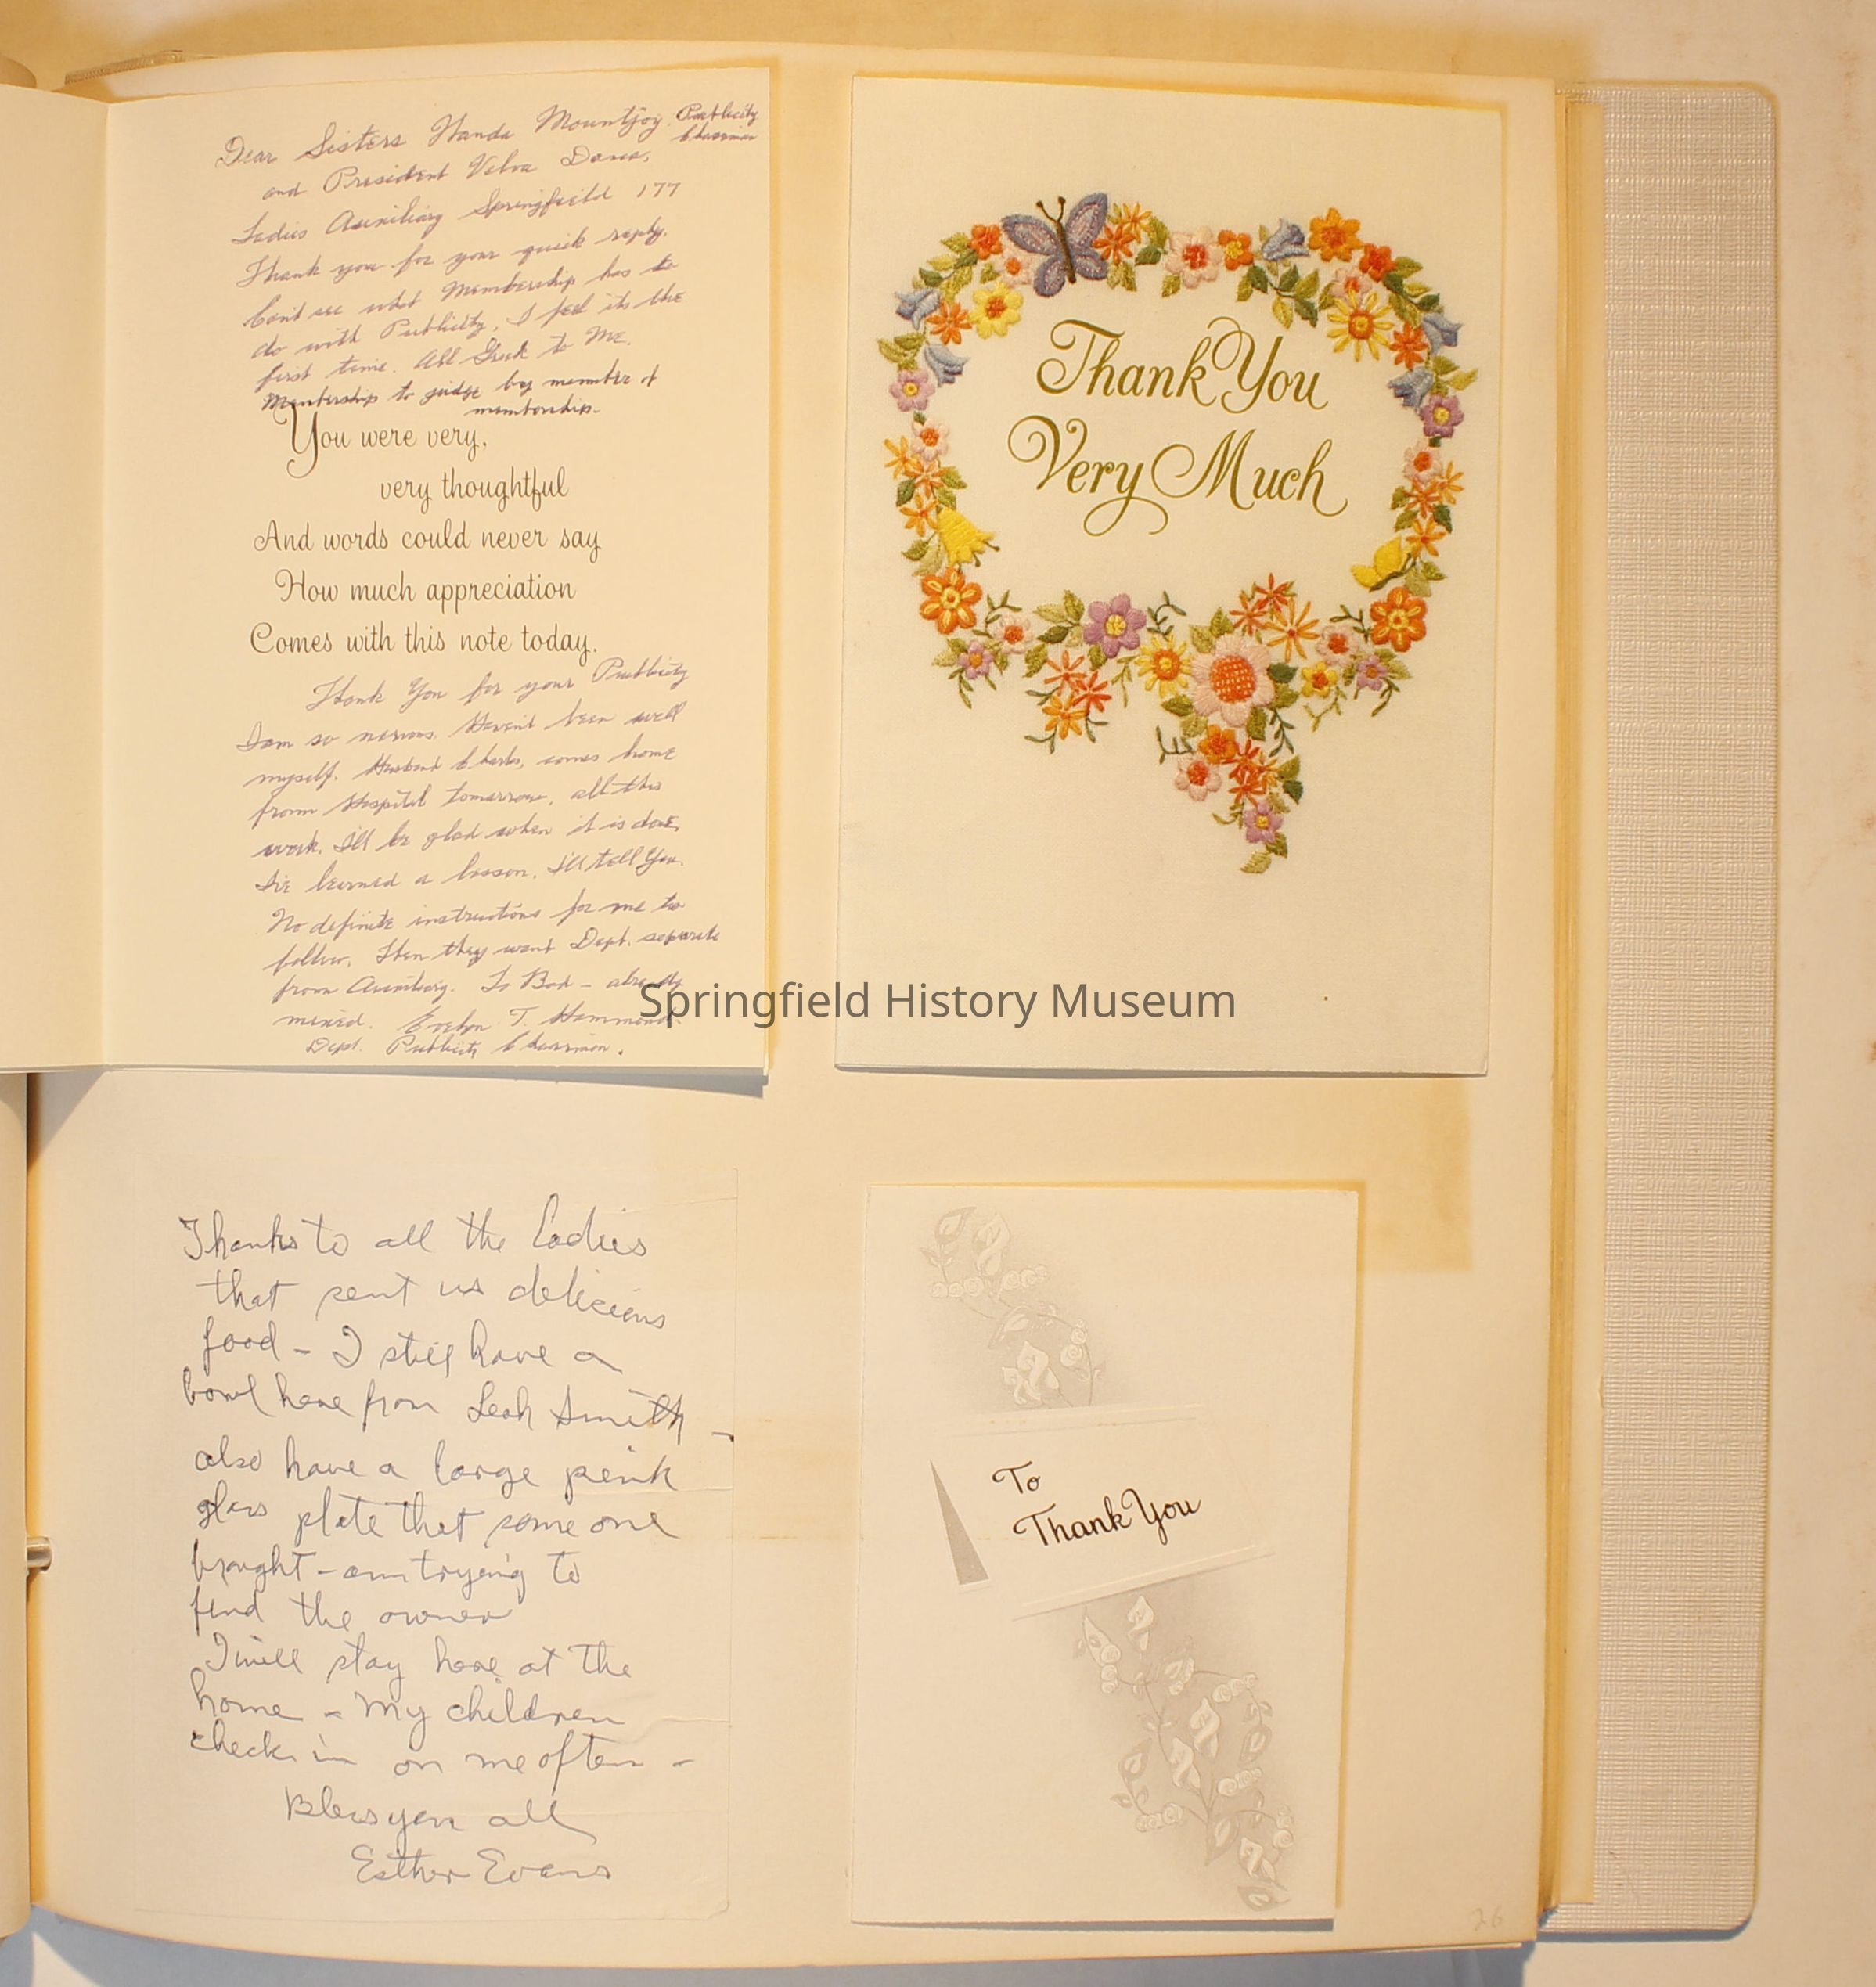 Dear Sisters Wanda Mountjoy Publicity
Chairman
and President Velva
Ladies Auxiliary Springfield 177
Thank you for your quick reply.
Can't see what Membership has to
do with Publicity, I feel its the
first time. All Greek to Me.
Membership to judge by member of
membership.
You were very,
very thoughtful
And words could never say
How much appreciation
Comes with this note today.
Thank You for your Publicity
I am so nervous. Haven't been well
myself. Husband Charles, comes home
from Hospital tomorrow, all this
work. I'll be glad when it is done,
I've learned a lesson, I'll tell You.
No definite instructions for me to
follow. Then they want Dept. separate
from Auxiliary. To Bad - already
mixed. Evelyn T. Hammond.
Dept. Publicity Chairman.
Thank You
Very Much
Springfield History Museum
Thanks to all the Ladies
that sent us delicious
food - I still have a
bowl here from Leah Smith -
also have a large pink
glass plate that some one
brought - am trying to
find the owner
I will stay here at the
home - My children
check in on me often -
Bless you all
Esther Evans
To
Thank You
26